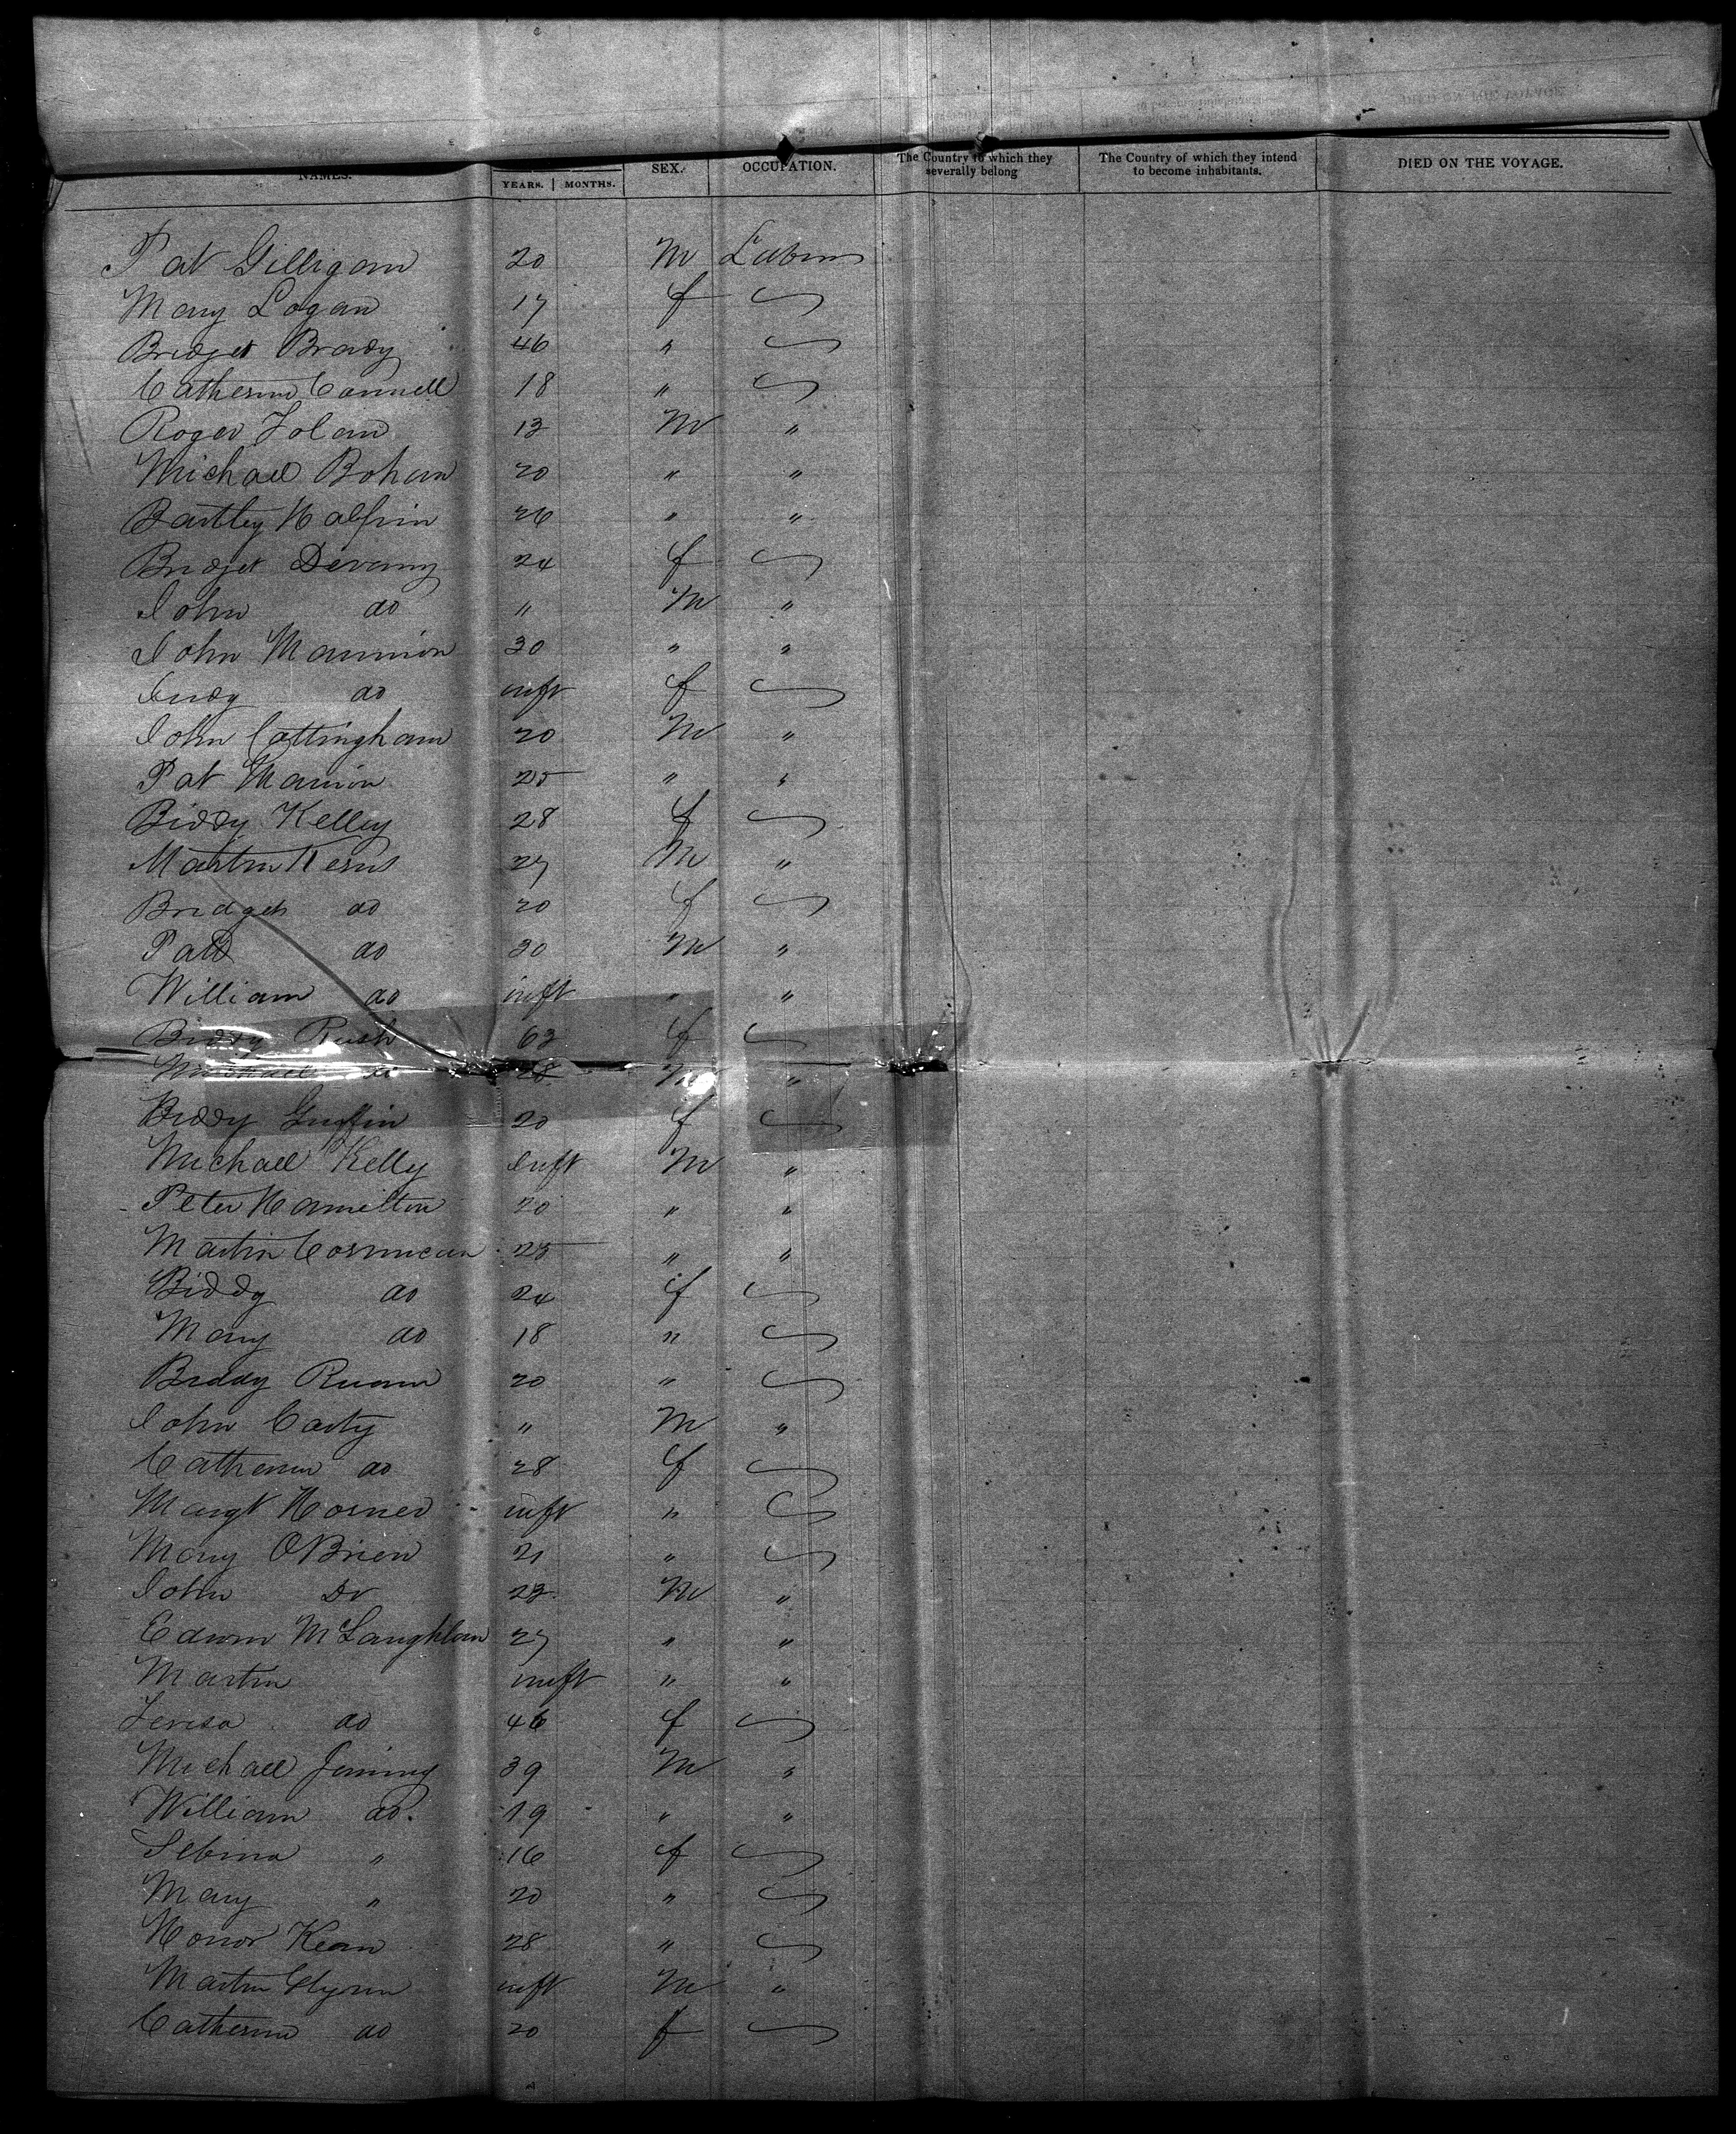 NAMES. YEARS. MONTHS. SEX. OCCUPATION. The Country to which they severally belong The Country of which they intend to become inhabitants. DIED ON THE VOYAGE.
Pat Gilligan 20 M Labour
Mary Logan 17 f
Bridget Brady 46 "
Catherine Connell 18 "
Roger Tolan 13 M "
Michael Bohan 20 " "
Bartley Halpin 26 " "
Bridget Devany 24 f
John do " M "
John Mannion 30 " "
Judy do inft f
John Cottingham 20 M "
Pat Manion 25 " "
Biddy Kelley 28 f
Martin Kerns 27 M "
Bridget do 20 f
Patk do 30 M "
William do inft " "
Biddy Rush 63 f
Michael do 28 M "
Biddy Griffin 20 f
Michael Kelly Inft M "
Peter Hamilton 20 " "
Martin Cormican 25 " "
Biddy do 24 f
Mary do 18 "
Biddy Ruane 20 "
John Carty " M "
Catherine do 28 f
Margt Horner inft "
Mary OBrien 21 "
John Do 23 M "
Edwin McLaughlan 27 " "
Martin inft " "
Teresa do 46 f
Michael Jening 39 M "
William do. 19 " "
Sebina " 16 f
Mary " 20 "
Honor Kean 28 "
Martin Glynn inft M "
Catherine do 20 f